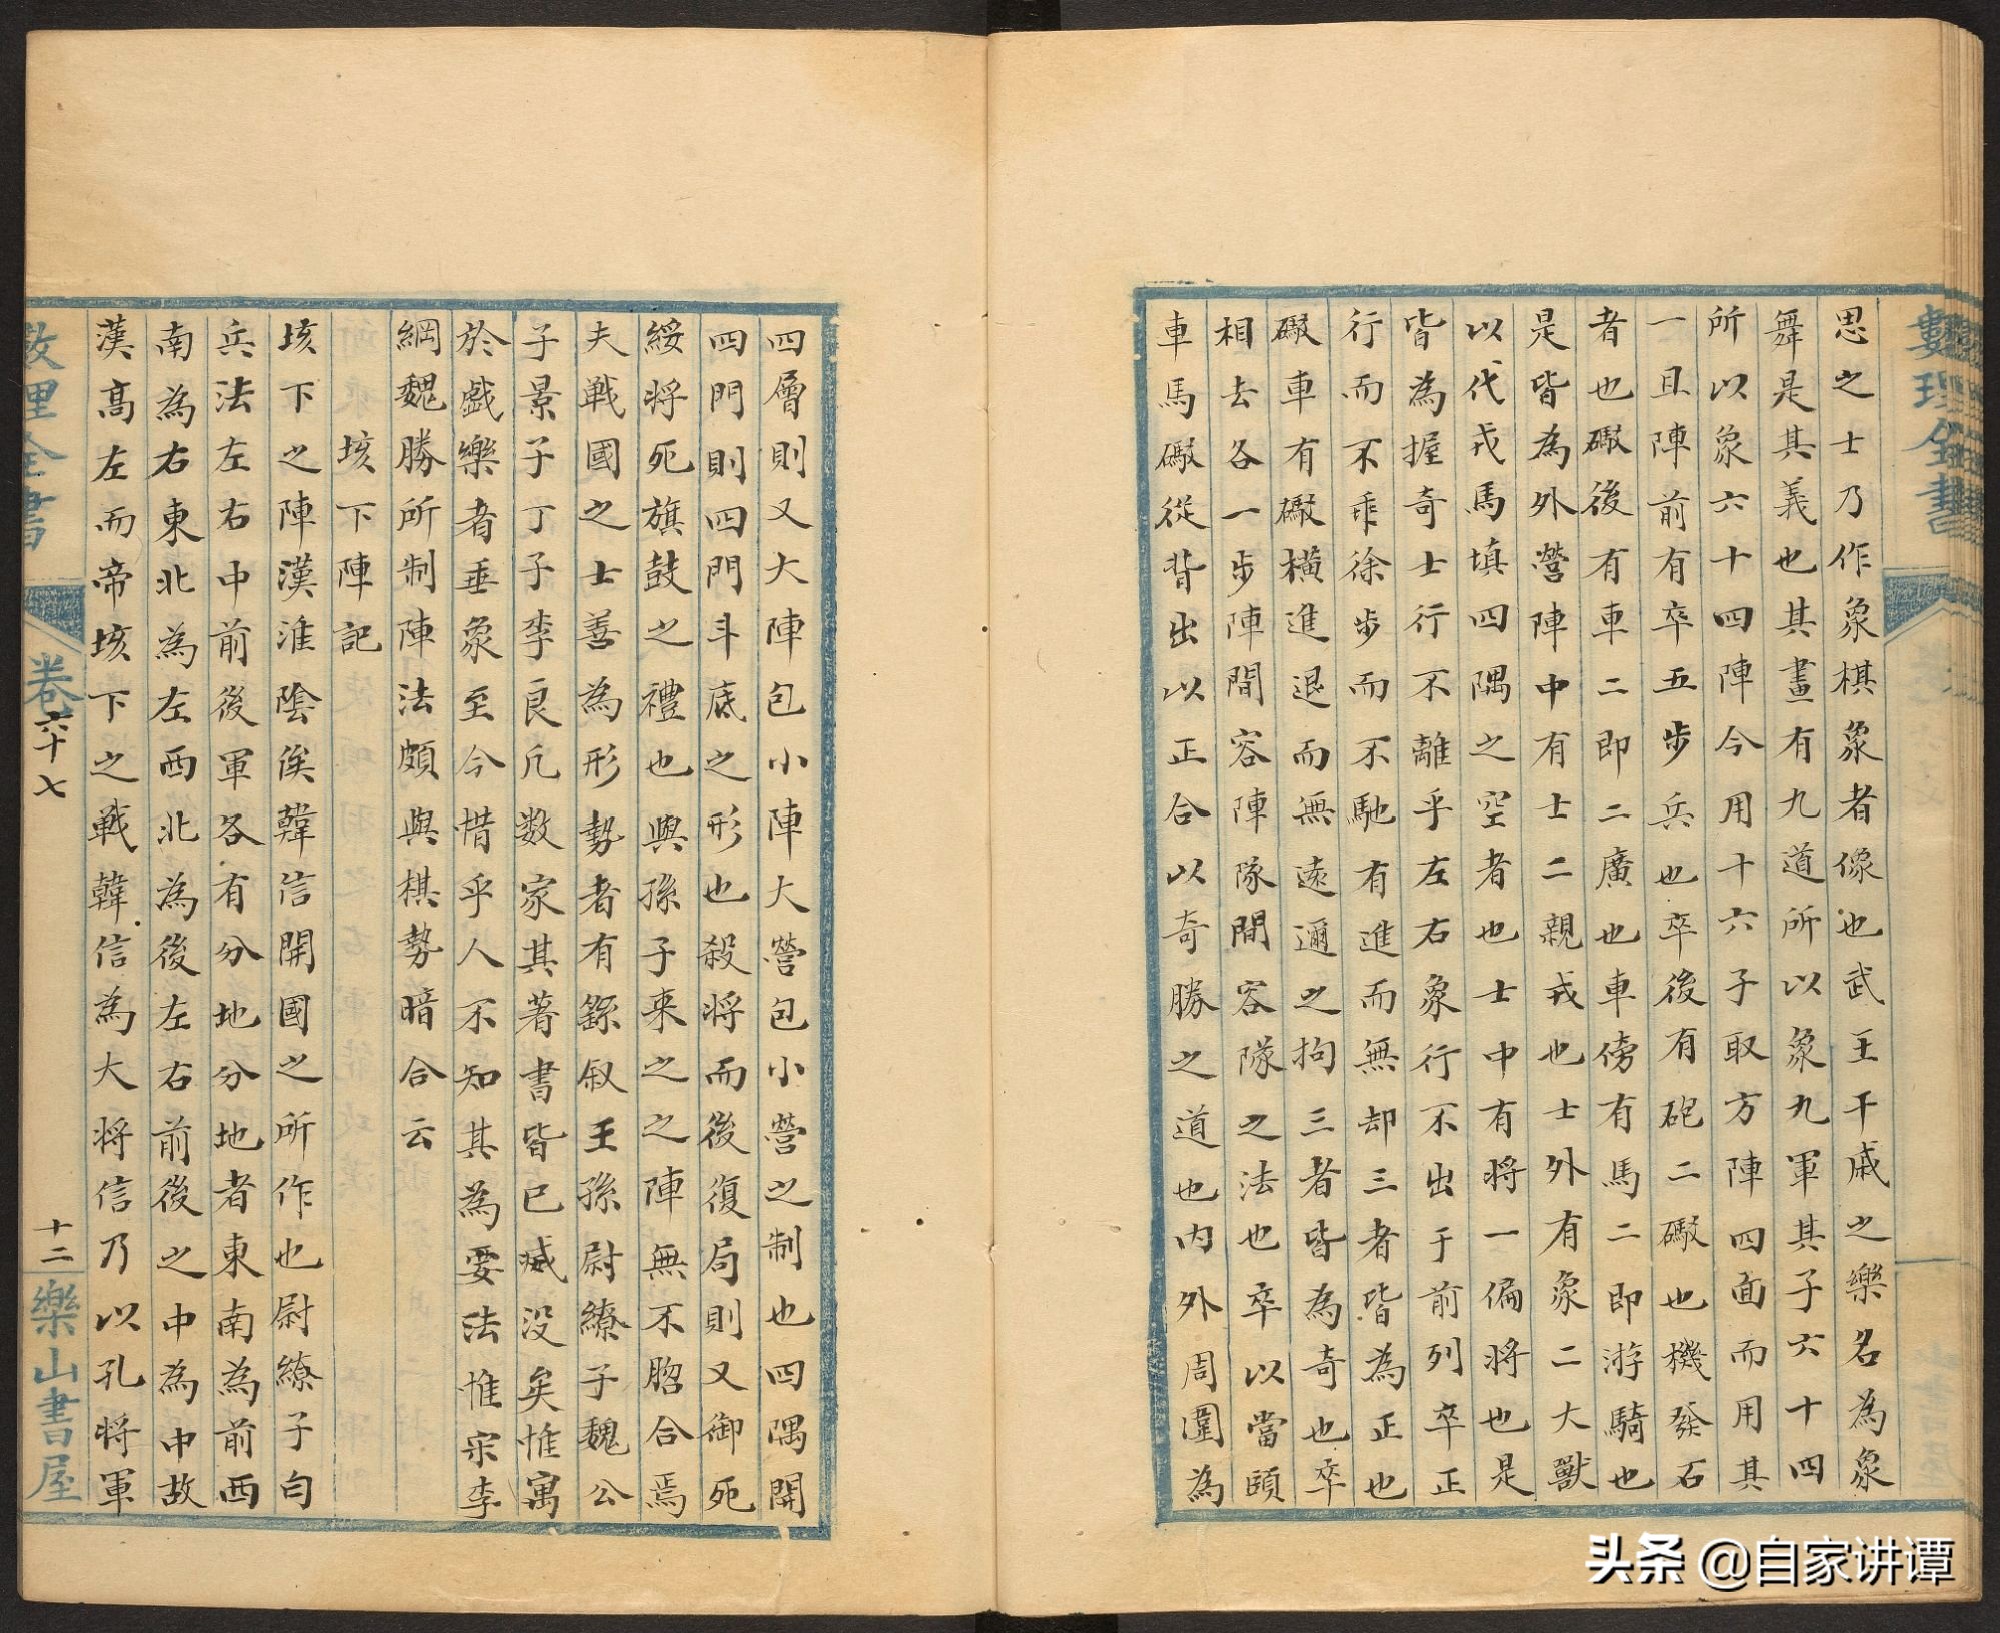 數理全書
思之士乃作象棋象者像也武王干戚之樂名為象
舞是其義也其畫有九道所以象九軍其子六十四
所以象六十四陣今用十六子取方陣四面而用其
一且陣前有卒五步兵也卒後有砲二礮也機發石
者也礮後有車二即二廣也車傍有馬二即游騎也
是皆為外營陣中有士二親戎也士外有象二大獸
以代戎馬填四隅之空者也士中有將一偏將也是
皆為握奇士行不離乎左右象行不出于前列卒正
行而不乖徐步而不馳有進而無却三者皆為正也
礮車有礮橫進退而無遠邇之拘三者皆為奇也卒
相去各一步陣間容陣隊間容隊之法也卒以當頤
車馬礮從背出以正合以奇勝之道也內外周圍為
四層則又大陣包小陣大營包小營之制也四隅開
四門則四門斗底之形也殺將而後復局則又御死
綏將死旗鼓之禮也與孫子来之之陣無不脗合焉
夫戰國之士善為形勢者有繇叙王孫尉繚子魏公
子景子丁子李良凡数家其著書皆已㓕没矣惟寓
於戯樂者垂象至今惜乎人不知其為要法惟宗李
綱魏勝所制陣法頗與棋勢暗合云
垓下陣記
垓下之陣漢淮陰侯韓信開國之所作也尉繚子曰
兵法左右中前後軍各有分地分地者東南為前西
南為右東北為左西北為後左右前後之中為中故
漢高左而帝垓下之戰韓信為大將信乃以孔將軍
數理全書
卷六十七
十二
樂山書屋
头条 @自家讲谭